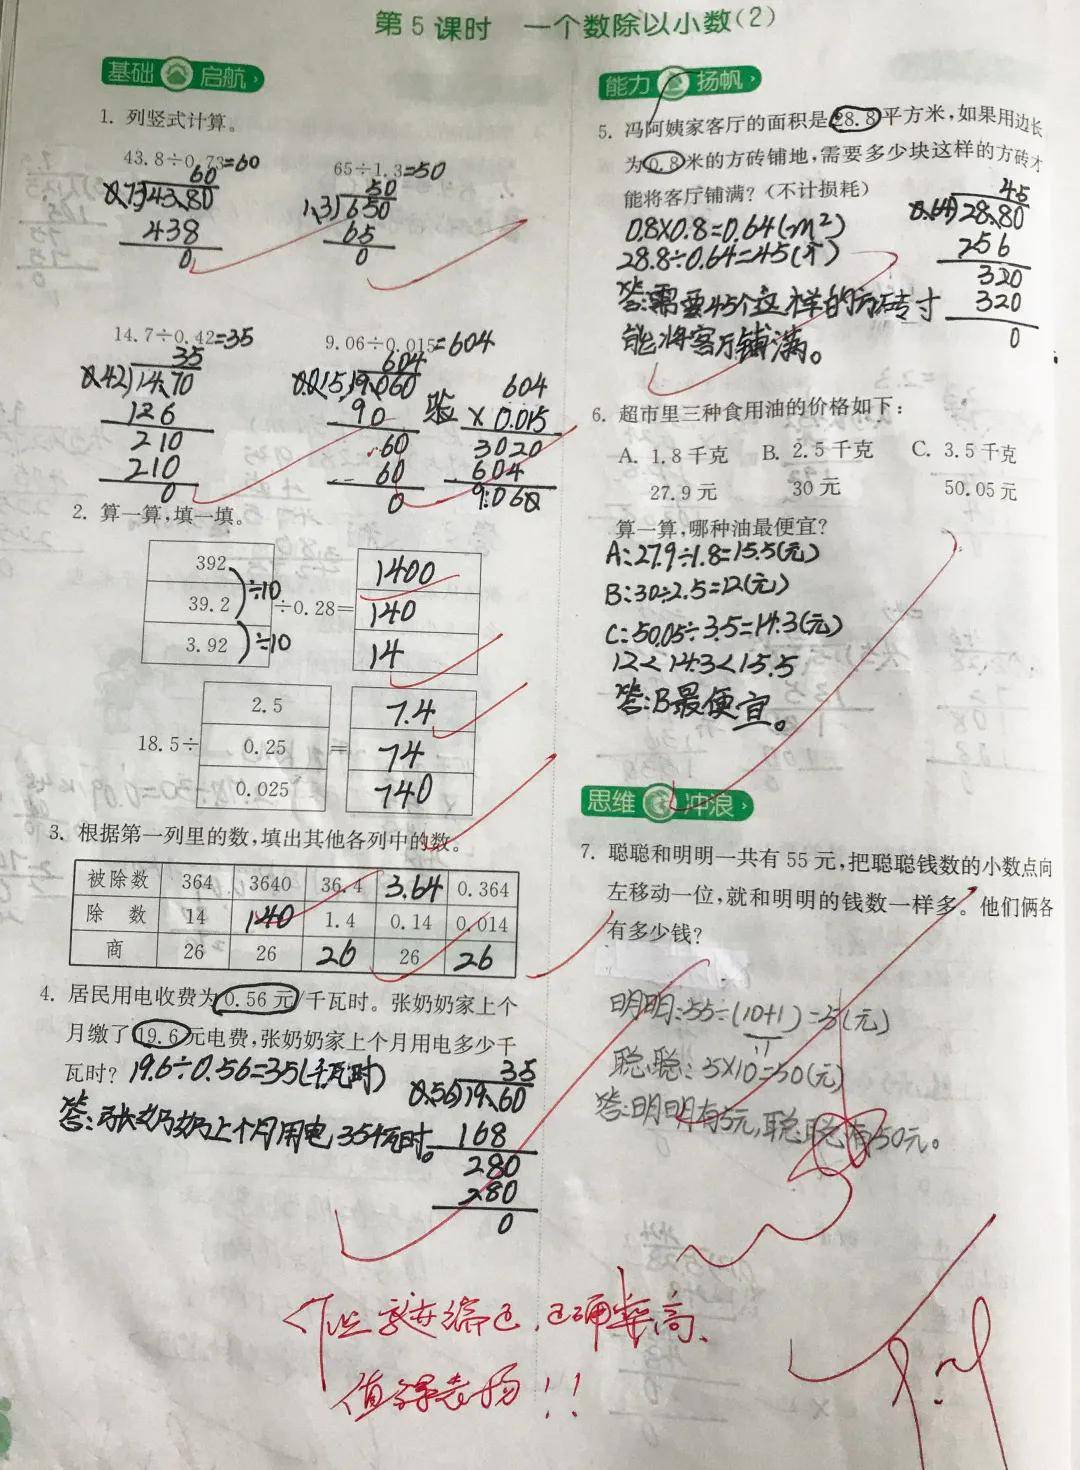 第5课时 一个数除以小数(2)
基础 启航
1. 列竖式计算。
43.8÷0.73=60
65÷1.3=50
60
50
0.73)43.80
1.3)650
438
65
0
0
14.7÷0.42=35
9.06÷0.015=604
35
604
0.42)14.70
0.015)9.060
126
90
210
60
210
60
0
0
验
604
×0.015
3020
604
9.060
2. 算一算,填一填。
392
39.2
3.92
÷10
÷10
÷0.28=
1400
140
14
18.5÷
2.5
0.25
0.025
=
7.4
74
740
3. 根据第一列里的数,填出其他各列中的数。
被除数 364 3640 36.4 3.64 0.364
除 数 14 140 1.4 0.14 0.014
商 26 26 26 26 26
4. 居民用电收费为0.56元/千瓦时。张奶奶家上个
月缴了19.6元电费,张奶奶家上个月用电多少千
瓦时? 19.6÷0.56=35(千瓦时)
答:张奶奶上个月用电35千瓦时。
35
0.56)19.60
168
280
280
0
能力 扬帆
5. 冯阿姨家客厅的面积是28.8平方米,如果用边长
为0.8米的方砖铺地,需要多少块这样的方砖才
能将客厅铺满?(不计损耗)
0.8×0.8=0.64(m²)
28.8÷0.64=45(个)
答:需要45个这样的方砖才
能将客厅铺满。
45
0.64)28.80
256
320
320
0
6. 超市里三种食用油的价格如下:
A. 1.8千克 B. 2.5千克 C. 3.5千克
27.9元 30元 50.05元
算一算,哪种油最便宜?
A:27.9÷1.8=15.5(元)
B:30÷2.5=12(元)
C:50.05÷3.5=14.3(元)
12<14.3<15.5
答:B最便宜。
思维 冲浪
7. 聪聪和明明一共有55元,把聪聪钱数的小数点向
左移动一位,就和明明的钱数一样多。他们俩各
有多少钱?
明明:55÷(10+1)=5(元)
11
聪聪:5×10=50(元)
答:明明有5元,聪聪有50元。
高、
值得表扬!!